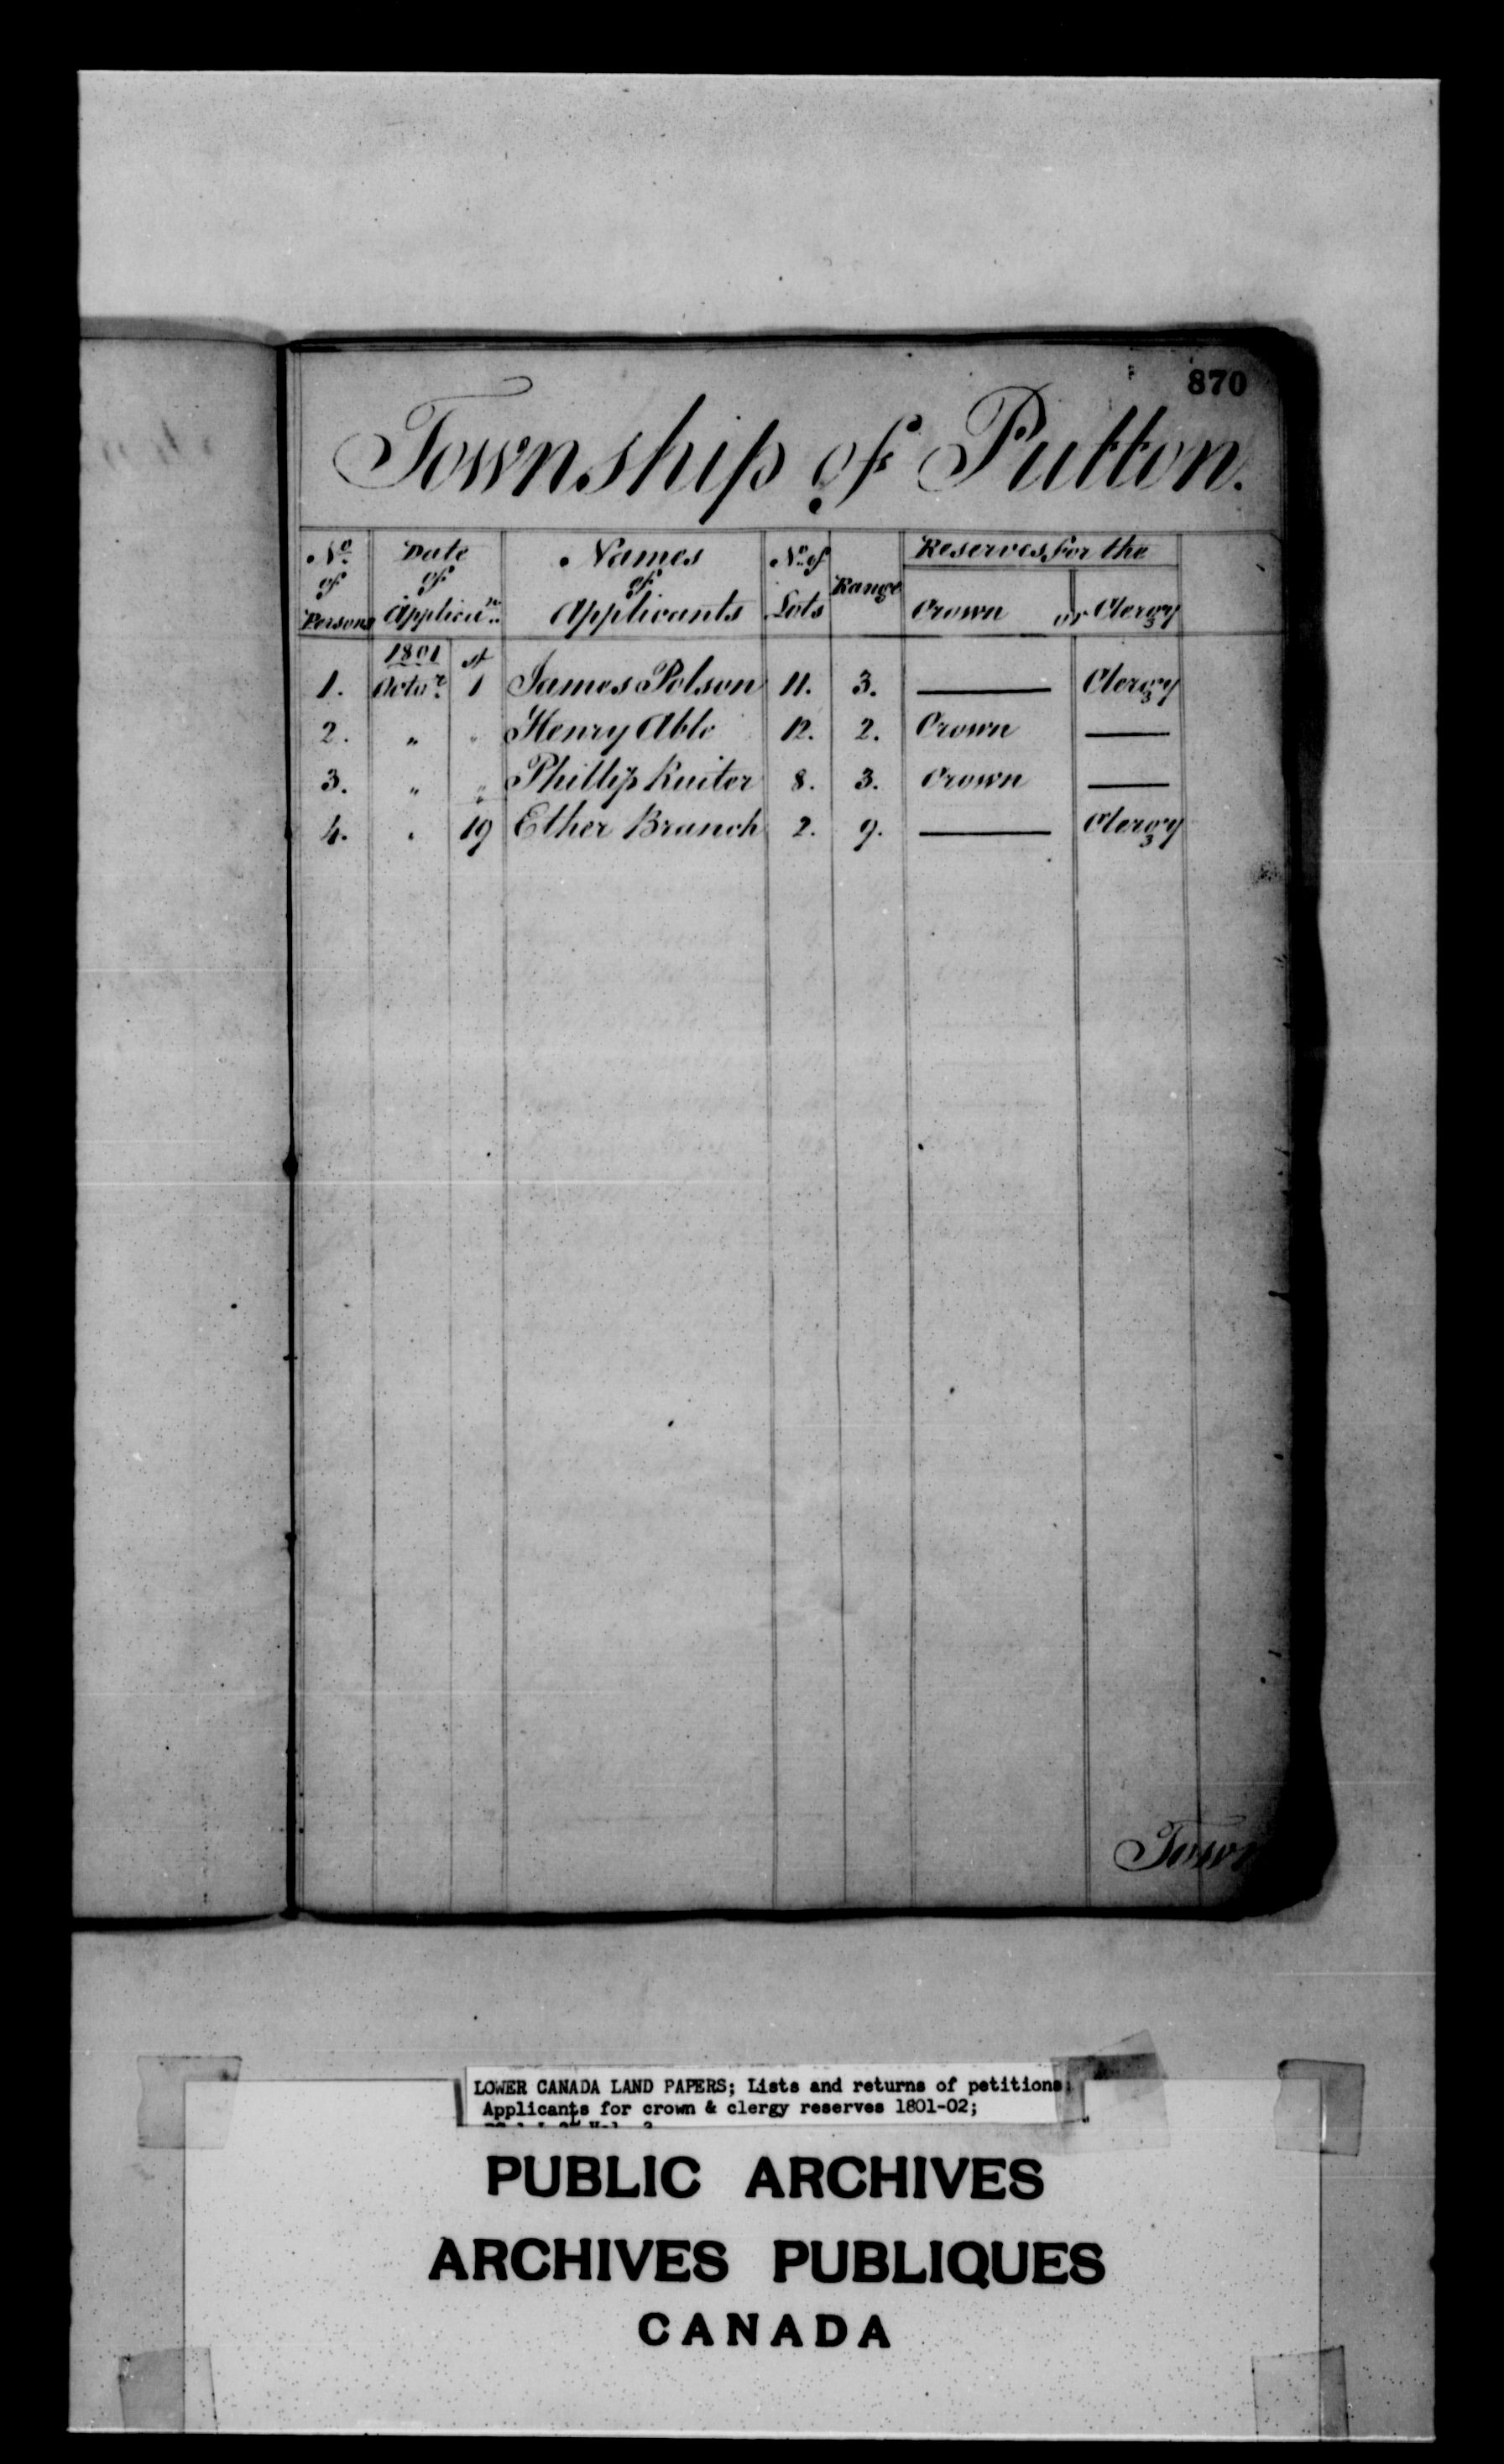 870
Township of Putton.
No. of Persons Date of Applican. Names of Applicants No. of Lots Range Reserves for the Crown or Clergy
1801
1. Octor. 1st James Polson 11. 3. — Clergy
2. " " Henry Able 12. 2. Crown —
3. " " Phillip Ruiter 8. 3. Crown —
4. " 19 Ether Branch 2. 9. — Clergy
Town
LOWER CANADA LAND PAPERS; Lists and returns of petitions;
Applicants for crown & clergy reserves 1801-02;
PUBLIC ARCHIVES
ARCHIVES PUBLIQUES
CANADA